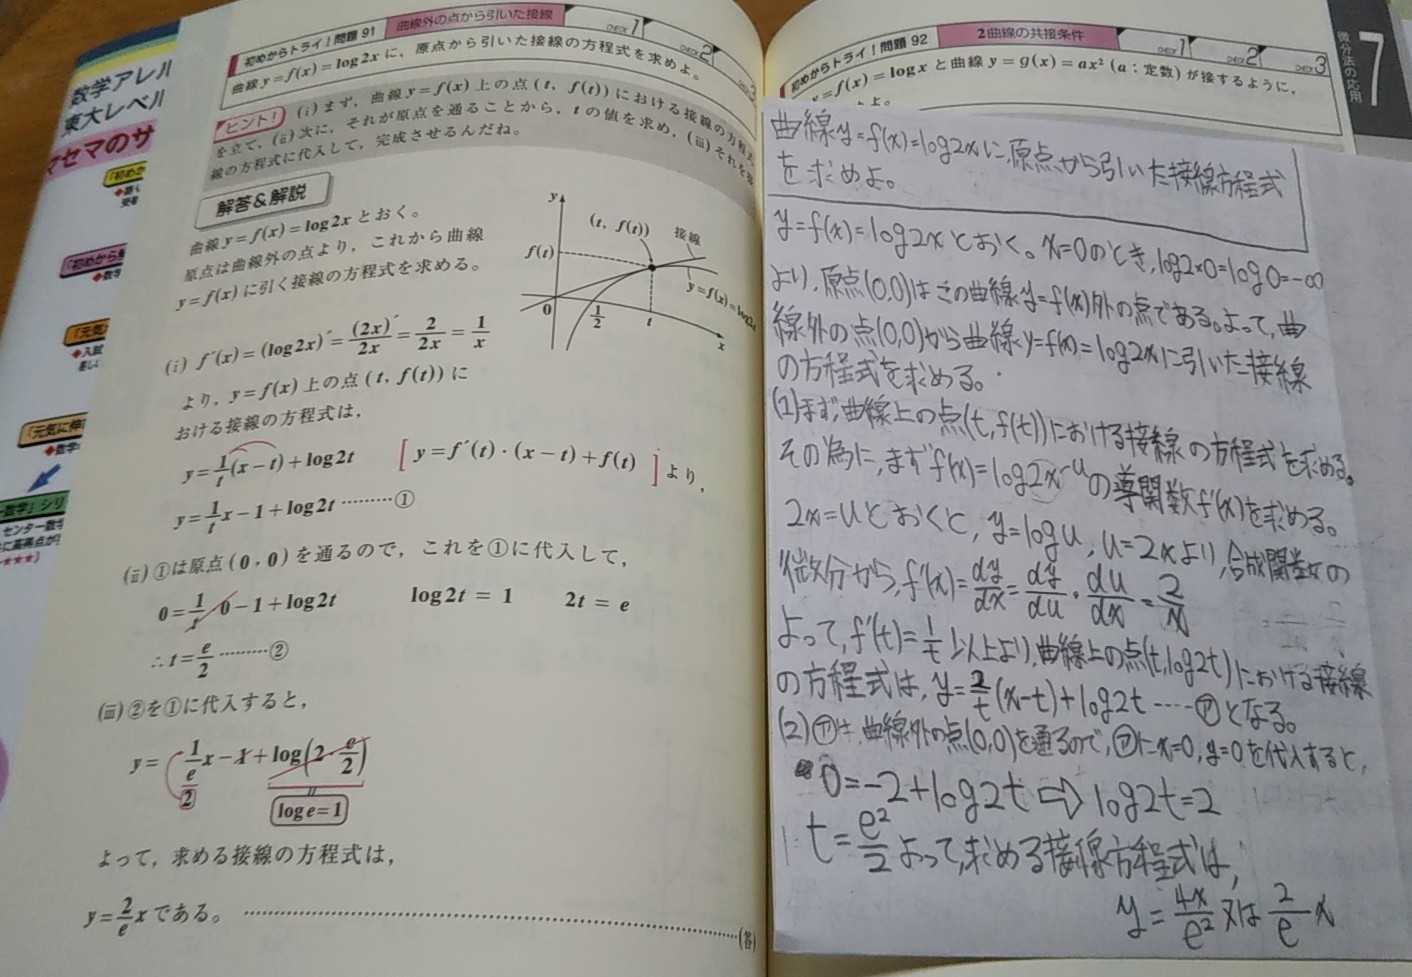 数学アレル
東大レベル
マセマのサ
「初めか
「初めから
◆数学
「元気
◆入試
「元気に伸
◆数学
数学」シリ
センター数
初めからトライ！問題 91
曲線外の点から引いた接線
CHECK 1
CHECK 2
CHECK 3
曲線 y = f(x) = log2x に，原点から引いた接線の方程式を求めよ。
ヒント！
(i) まず，曲線 y = f(x) 上の点 (t, f(t)) における接線の方程式
を立て，(ii) 次に，それが原点を通ることから，t の値を求め，(iii) それを接
線の方程式に代入して，完成させるんだね。
解答＆解説
曲線 y = f(x) = log2x とおく。
原点は曲線外の点より，これから曲線
y = f(x) に引く接線の方程式を求める。
y
(t, f(t))
接線
f(t)
y = f(x) = log2x
0
1/2
t
x
(i) f´(x) = (log2x)´ = (2x)´/2x = 2/2x = 1/x
より，y = f(x) 上の点 (t, f(t)) に
おける接線の方程式は，
y = 1/t (x − t) + log2t [ y = f´(t)・(x − t) + f(t) ] より，
y = 1/t x − 1 + log2t ………①
(ii) ①は原点 (0, 0) を通るので，これを①に代入して，
0 = 1/t・0 − 1 + log2t log2t = 1 2t = e
∴ t = e/2 ………②
(iii) ②を①に代入すると，
y = 1/(e/2) x − 1 + log(2・e/2)
log e = 1
よって，求める接線の方程式は，
y = 2/e x である。 ………(答)
初めからトライ！問題 92
2曲線の共接条件
CHECK 1
CHECK 2
CHECK 3
y = f(x) = logx と曲線 y = g(x) = ax² (a：定数) が接するように，
よ。
微分法の応用
7
曲線y=f(x)=log2xに,原点から引いた接線方程式
を求めよ。
y=f(x)=log2xとおく。x=0のとき,log2×0=log0=-∞
より,原点(0,0)はこの曲線y=f(x)外の点である。よって,曲
線外の点(0,0)から曲線y=f(x)=log2xに引いた接線
の方程式を求める。
(1)まず,曲線上の点(t,f(t))における接線の方程式を求める。
その為に,まずf(x)=log2x-uの導関数f'(x)を求める。
2x=uとおくと,y=logu,u=2xより,合成関数の
微分から,f'(x)=dy/dx=dy/du・du/dx=2/x
よって,f'(t)=1/t 以上より,曲線上の点(t,log2t)における接線
の方程式は,y=2/t(x-t)+log2t ---- ㋐となる。
(2)㋐は,曲線外の点(0,0)を通るので,㋐にx=0,y=0を代入すると,
0=-2+log2t ⇨ log2t=2
t=e²/2 よって,求める接線方程式は,
y=4x/e² 又は 2/e x